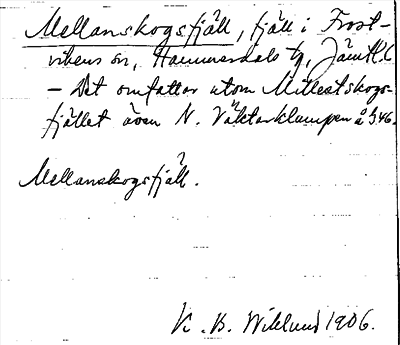 Mellanskogsfjäll, fjäll i Frost-
vikens sn, Hammerdals tg, Jämtl. l
– Det omfattar utom Mittestskogs-
fjället även N. Väktarklumpen å 346.
Mellanskogsfjäll.
K. B. Wiklund 1906.